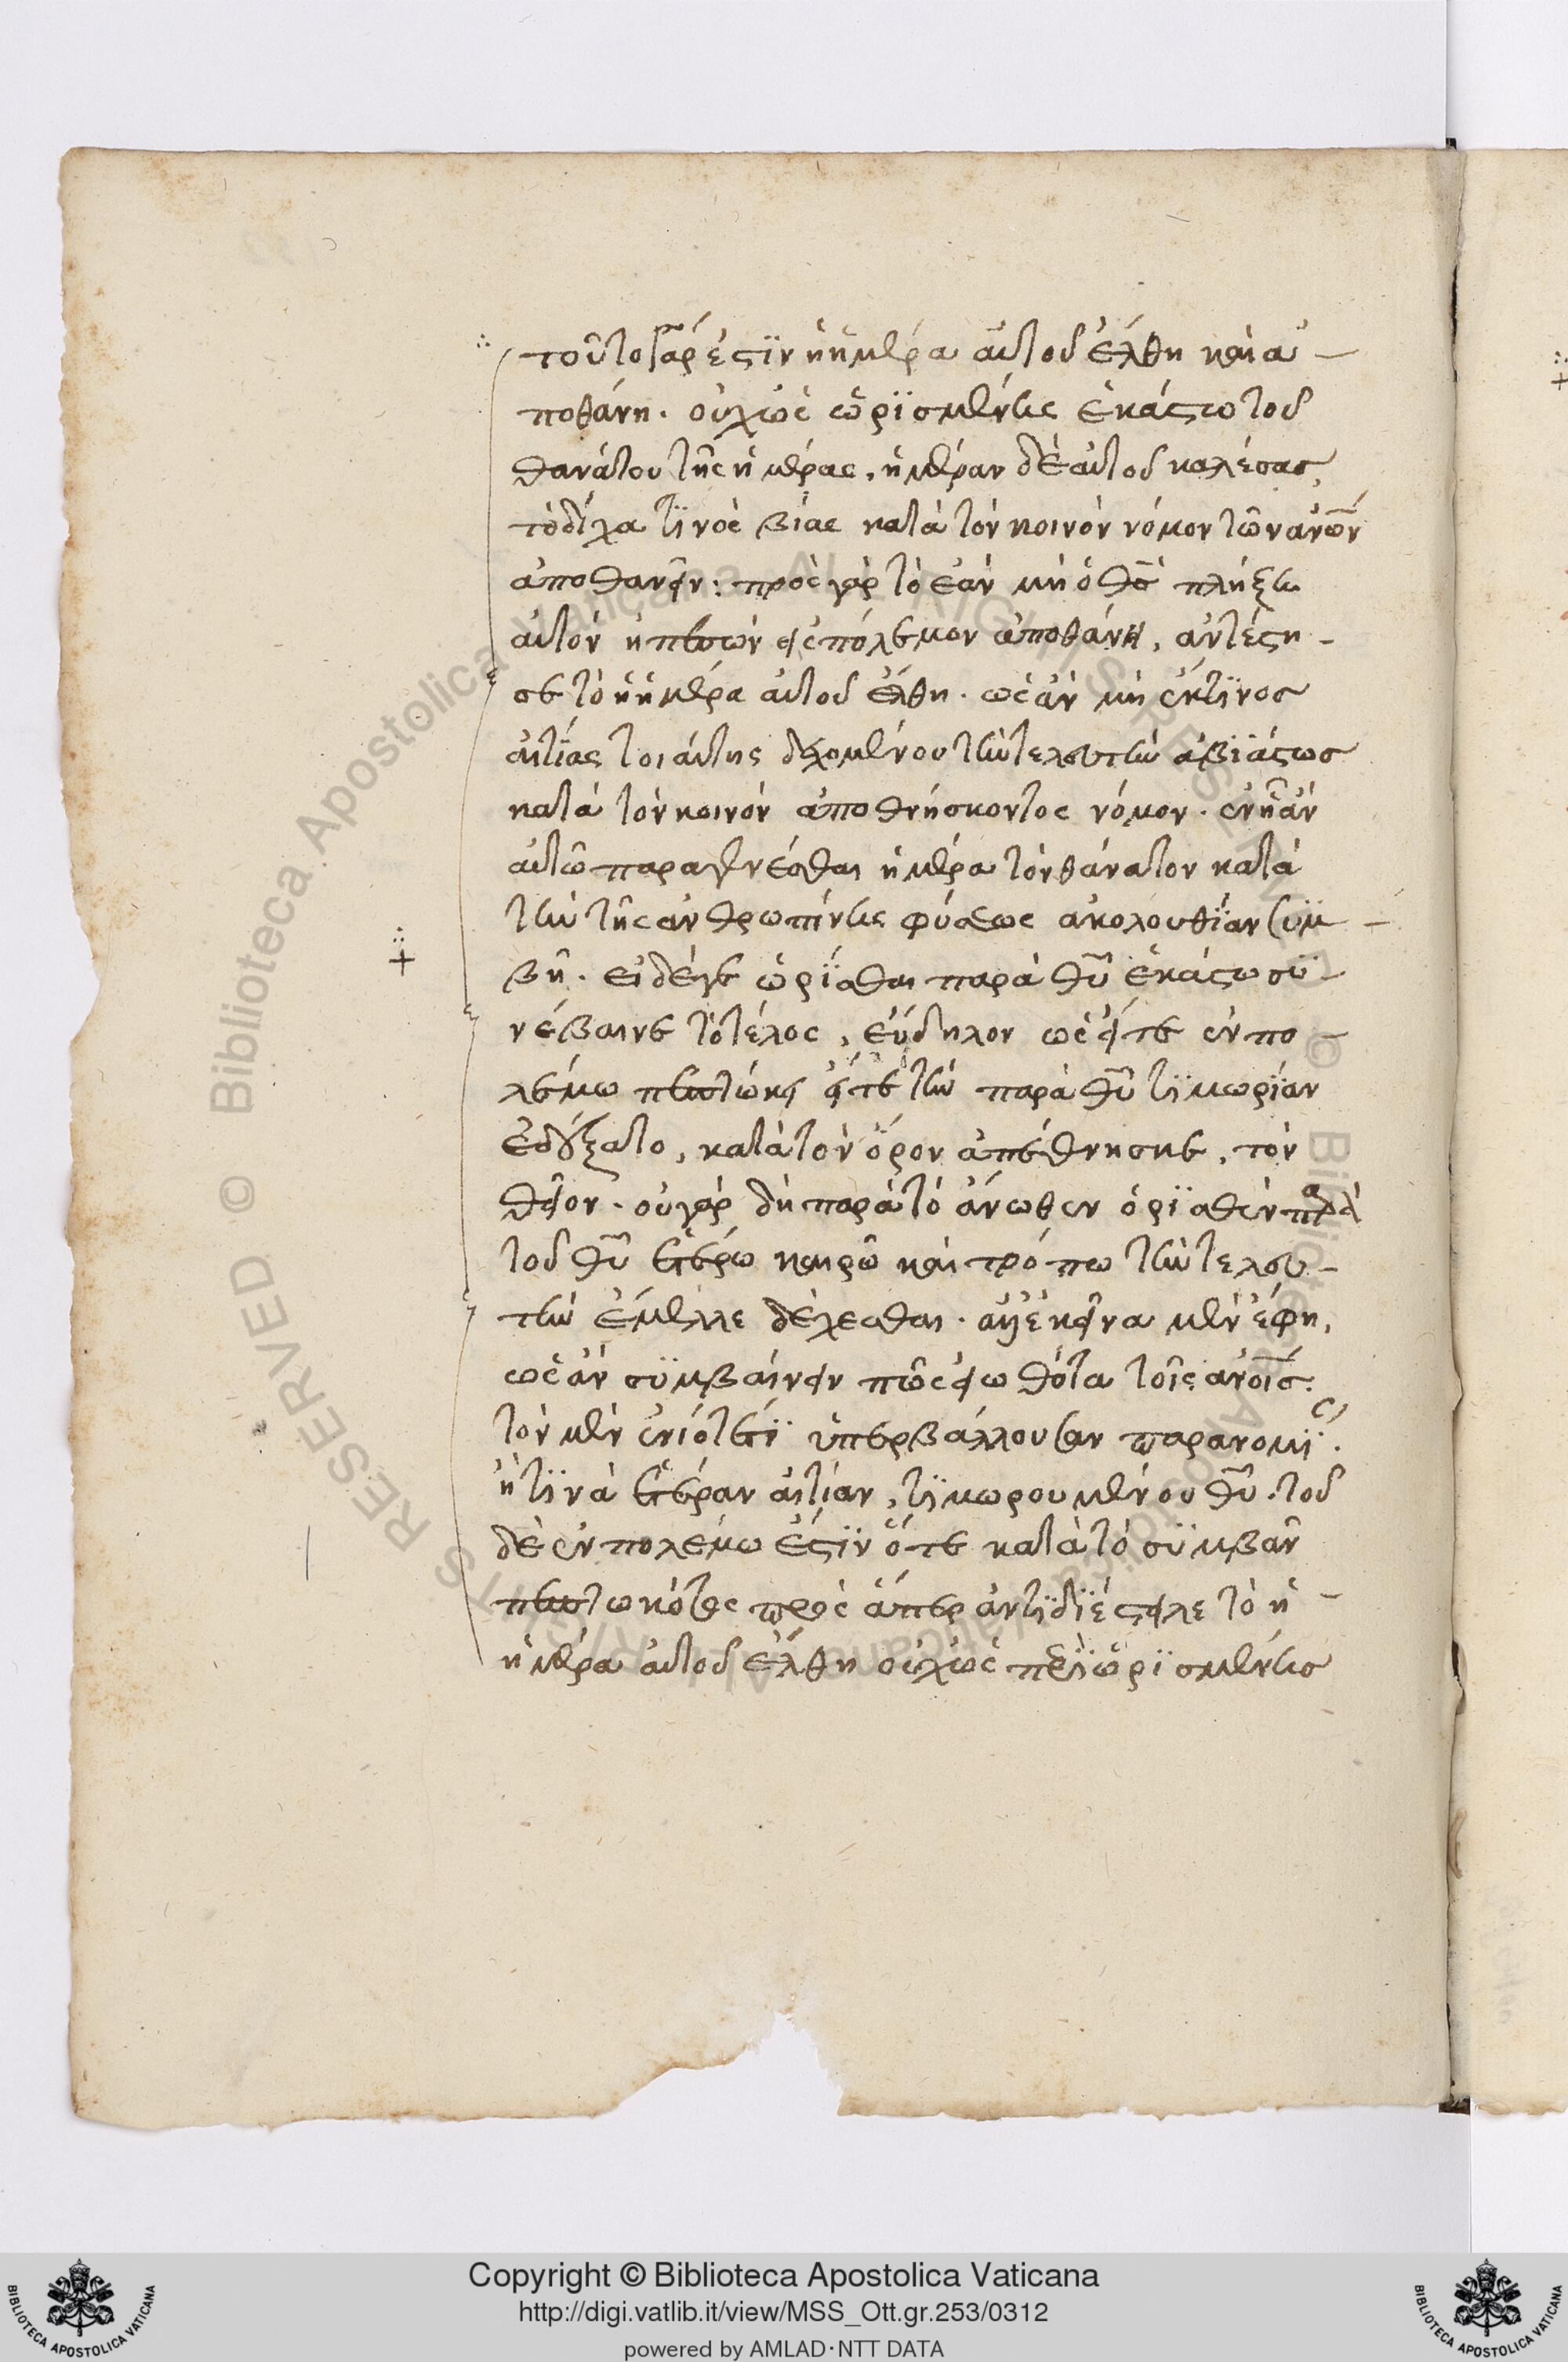 τοῦτο γάρ ἐστϊν ἡ ἡμέρα αὐτοῦ ἔλθη καὶ ἀ-
ποθάνη. οὐχ ὡς ὡρϊσμένης ἑκάστω τοῦ
θανάτου τῆς ἡμέρας, ἡμέραν δὲ αὐτοῦ καλέσας,
τὸ δίχα τϊνὸς βίας κατὰ τὸν κοινὸν νόμον τῶν ἀνῶν
ἀποθανεῖν: πρὸς γὰρ τὸ ἐὰν μὴ ὁ θς πλήξη
αὐτὸν ἢ πεσὼν εἰς πόλεμον ἀποθάνη, ἀντέστη-
σε τὸ ἡ ἡμέρα αὐτοῦ ἔλθη. ὡς ἂν μὴ ἔκ τϊνος
αἰτίας τοιαύτης δεχομένου τὴν τελευτὴν ἀβϊάστως
κατὰ τὸν κοινὸν ἀποθνήσκοντος νόμον. ἐν ἧ ἂν
αὐτῶ παραγενέσθαι ἡμέρα τὸν θάνατον κατὰ
τὴν τῆς ἀνθρωπίνης φύσεως ἀκολουθΐαν συμ-
βῆ. εἰ δέ γε ὡρΐσθαι παρὰ θυ ἑκάστω συ-
νέβαινε τὸ τέλος, εὔδηλον ὡς εἴτε ἐν πο-
λέμω πεπτώκει εἴτε τὴν παρὰ θυ τϊμωρΐαν
ἐδέξατο, κατὰ τὸν ὅρον ἀπέθνησκε, τὸν
θεῖον. οὐ γὰρ δὴ παρὰ τὸ ἄνωθεν ὁρϊσθὲν παρὰ
τοῦ θυ ἑτέρω καιρῶ καὶ τρόπω τὴν τελευ-
τὴν ἔμελλε δέχεσθαι. ἀλλ' ἐκεῖνα μὲν ἔφη,
ὡς ἂν συμβαίνειν πῶς εἰωθότα τοῖς ἀνοις.
τὸν μὲν ἐνίοτε ἐϊ ὑπερβάλλουσαν παρανομΐ.
ἢ τϊνὰ ἑτέραν αἰτίαν, τϊμωρουμένου θυ. τοῦ
δὲ ἐν πολέμω ἔστϊν ὅτε κατὰ τὸ συμβὰν
πεπτωκότος πρὸς ἅπερ ἀντϊδϊέστειλε τὸ ἡ
ἡμέρα αὐτοῦ ἔλθη οὐχ ὡς περϊωρϊσμένης
Copyright © Biblioteca Apostolica Vaticana
http://digi.vatlib.it/view/MSS_Ott.gr.253/0312
powered by AMLAD·NTT DATA